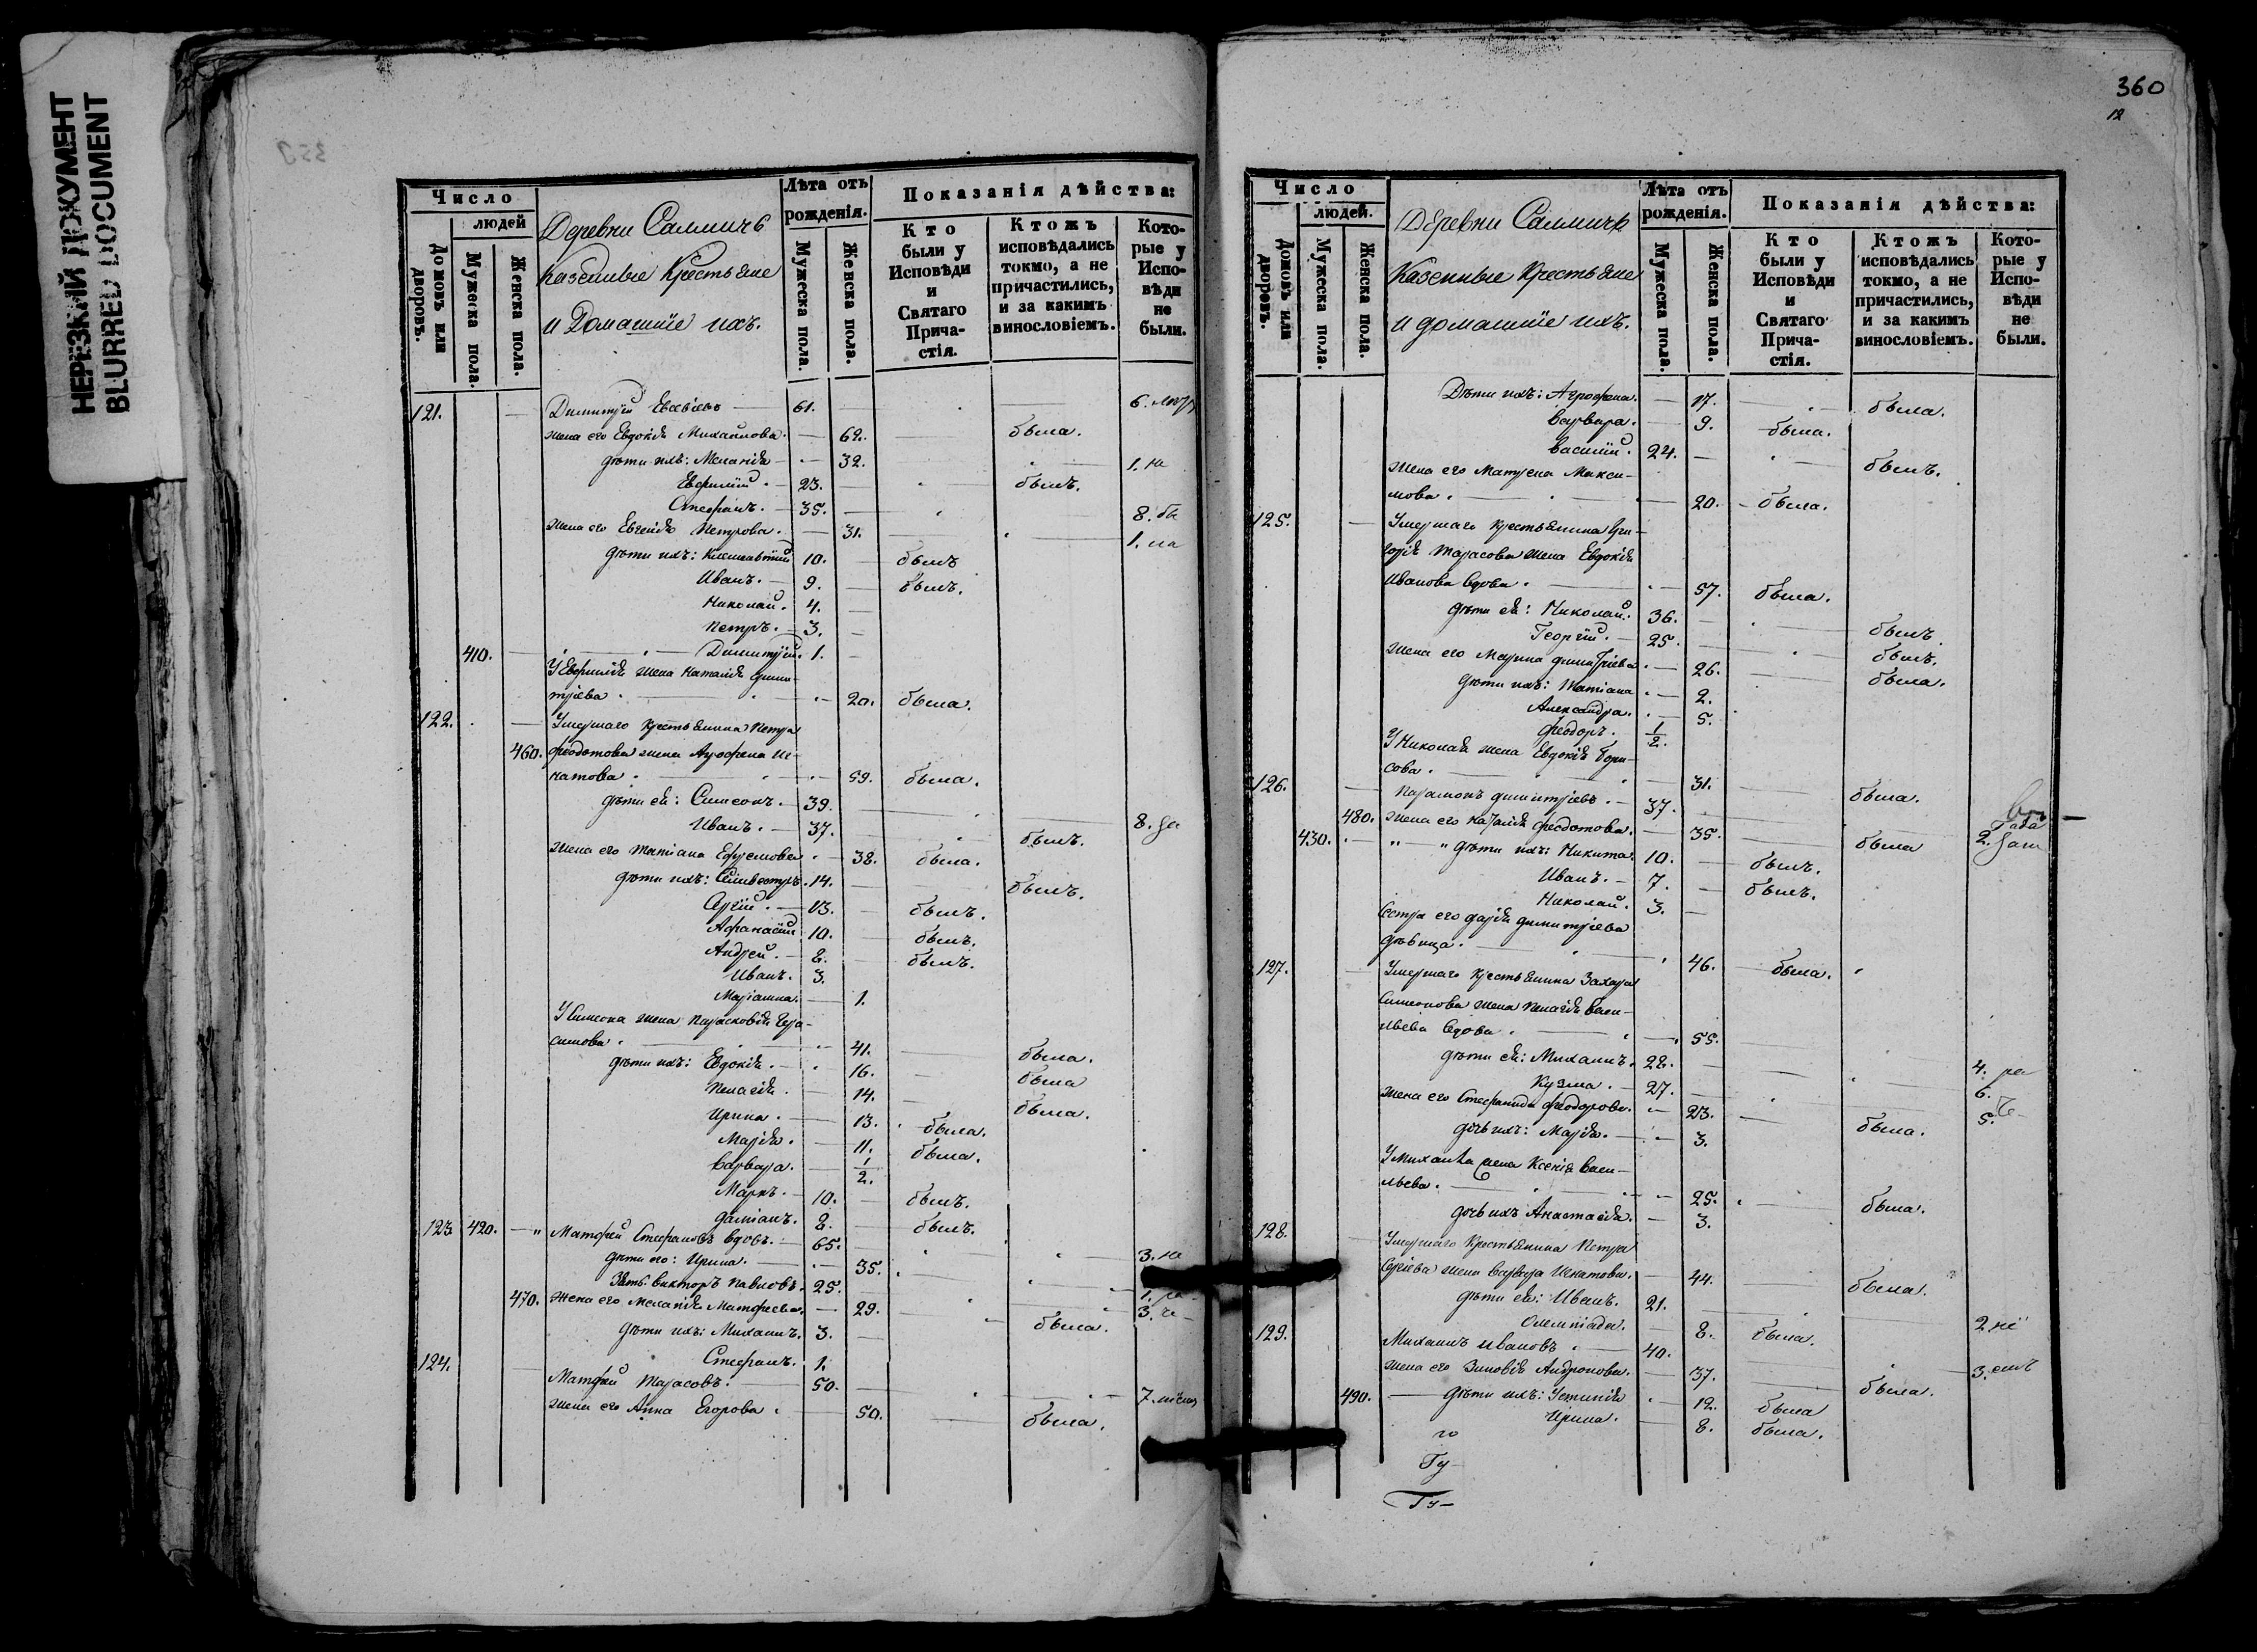 НЕРЕЗКИЙ ДОКУМЕНТ
BLURRED DOCUMENT
Число
людей
Домовъ или дворовъ.
Мужеска пола.
Женска пола.
Деревни Салличь
Казенные Крестьяне
и Домашніе ихъ.
Лѣта отъ
рожденія.
Мужеска пола.
Женска пола.
Показанія дѣйства:
Кто
были у
Исповѣди
и
Святаго
Прича-
стія.
Ктожъ
исповѣдались
токмо, а не
причастились,
и за какимъ
винословіемъ.
Кото-
рые у
Испо-
вѣди
не
были.
121. Димитрій Евсѣевъ 61. 6.
жена его Евдокія Михайлова. 62. была.
дѣти ихъ: Меланія 32. 1.
Евфимій. 23. былъ.
Стефанъ. 35. 8.
жена его Евгенія Петрова. 31. 1.
дѣти ихъ: Климентій 10. былъ
Иванъ. 9. былъ.
Николай. 4.
Петръ. 3.
410. Димитрій. 1.
У Евфимія жена Наталія Дими-
тріева. 20. была.
122. Умершаго крестьянина Петра
460. Феодотова жена Агрофена Иг-
натова. 59. была.
дѣти ея: Симеонъ. 39. 8.
Иванъ. 37. былъ.
жена его Татіана Ефремова 38. была.
дѣти ихъ: Селивестръ. 14. былъ.
Сергій. 13. былъ.
Афанасій 10. былъ.
Андрей. 8. былъ.
Иванъ. 3.
Маріанна. 1.
У Симеона жена Парасковія Гера-
симова. 41. была.
дѣти ихъ: Евдокія. 16. была
Пелагія. 14. была.
Ирина. 13. была.
Марія. 11. была.
Варвара. 1/2.
Маркъ. 10. былъ.
Даміанъ. 8. былъ.
123. 420. Матфей Стефановъ вдовъ. 65. 3.
дѣти его: Ирина. 35. 1.
Зять Викторъ Павловъ. 25. 3.
470. жена его Меланія Матфеева. 29. была.
дѣти ихъ: Михаилъ. 3.
Стефанъ. 1.
124. Матфей Тарасовъ. 50. 7.
жена его Анна Егорова. 50. была.
360
12
Число
людей.
Домовъ или дворовъ.
Мужеска пола.
Женска пола.
Деревни Салличь
Казенные Крестьяне
и домашніе ихъ.
Лѣта отъ
рожденія.
Мужеска пола.
Женска пола.
Показанія дѣйства:
Кто
были у
Исповѣди
и
Святаго
Прича-
стія.
Ктожъ
исповѣдались
токмо, а не
причастились,
и за какимъ
винословіемъ.
Кото-
рые у
Испо-
вѣди
не
были.
Дѣти ихъ: Агрофена. 17. была.
Варвара. 9. была.
Василій. 24. былъ.
жена его Матрена Макси-
мова. 20. была.
125. Умершаго крестьянина Гри-
горія Тарасова жена Евдокія
Иванова вдова. 57. была.
дѣти ея: Николай. 36. былъ
Георгій. 25. былъ.
жена его Марина Димитріева. 26. была.
дѣти ихъ: Татіана 2.
Александра. 5.
Феодоръ. 1/2.
У Николая жена Евдокія Бори-
сова. 31. была.
126. Парамонъ Димитріевъ. 37. 2.
480. жена его Наталія Феодотова. 35. была
430. дѣти ихъ: Никита. 10. былъ.
Иванъ. 7. былъ.
Николай. 3.
Сестра его Дарія Димитріева
дѣвица. 46. была.
127. Умершаго крестьянина Захара
Симеонова жена Пелагія Васи-
льева вдова. 55. 4.
дѣти ея: Михаилъ. 28. 6.
Кузма. 27. 5.
жена его Стефанида Феодорова. 23. была.
дочь ихъ: Марія. 3.
У Михаила жена Ксенія Васи-
льева. 25. была.
дочь ихъ Анастасія. 3.
128. Умершаго Крестьянина Петра
Сергіева жена Варвара Игнатова. 44. была.
дѣти ея: Иванъ. 21. 2
Олимпіада. 8. была.
129. Михаилъ Ивановъ 40. 3.
жена его Зиновія Андронова. 37. была.
490. дѣти ихъ: Устинія 12. была
Ирина. 8. была.